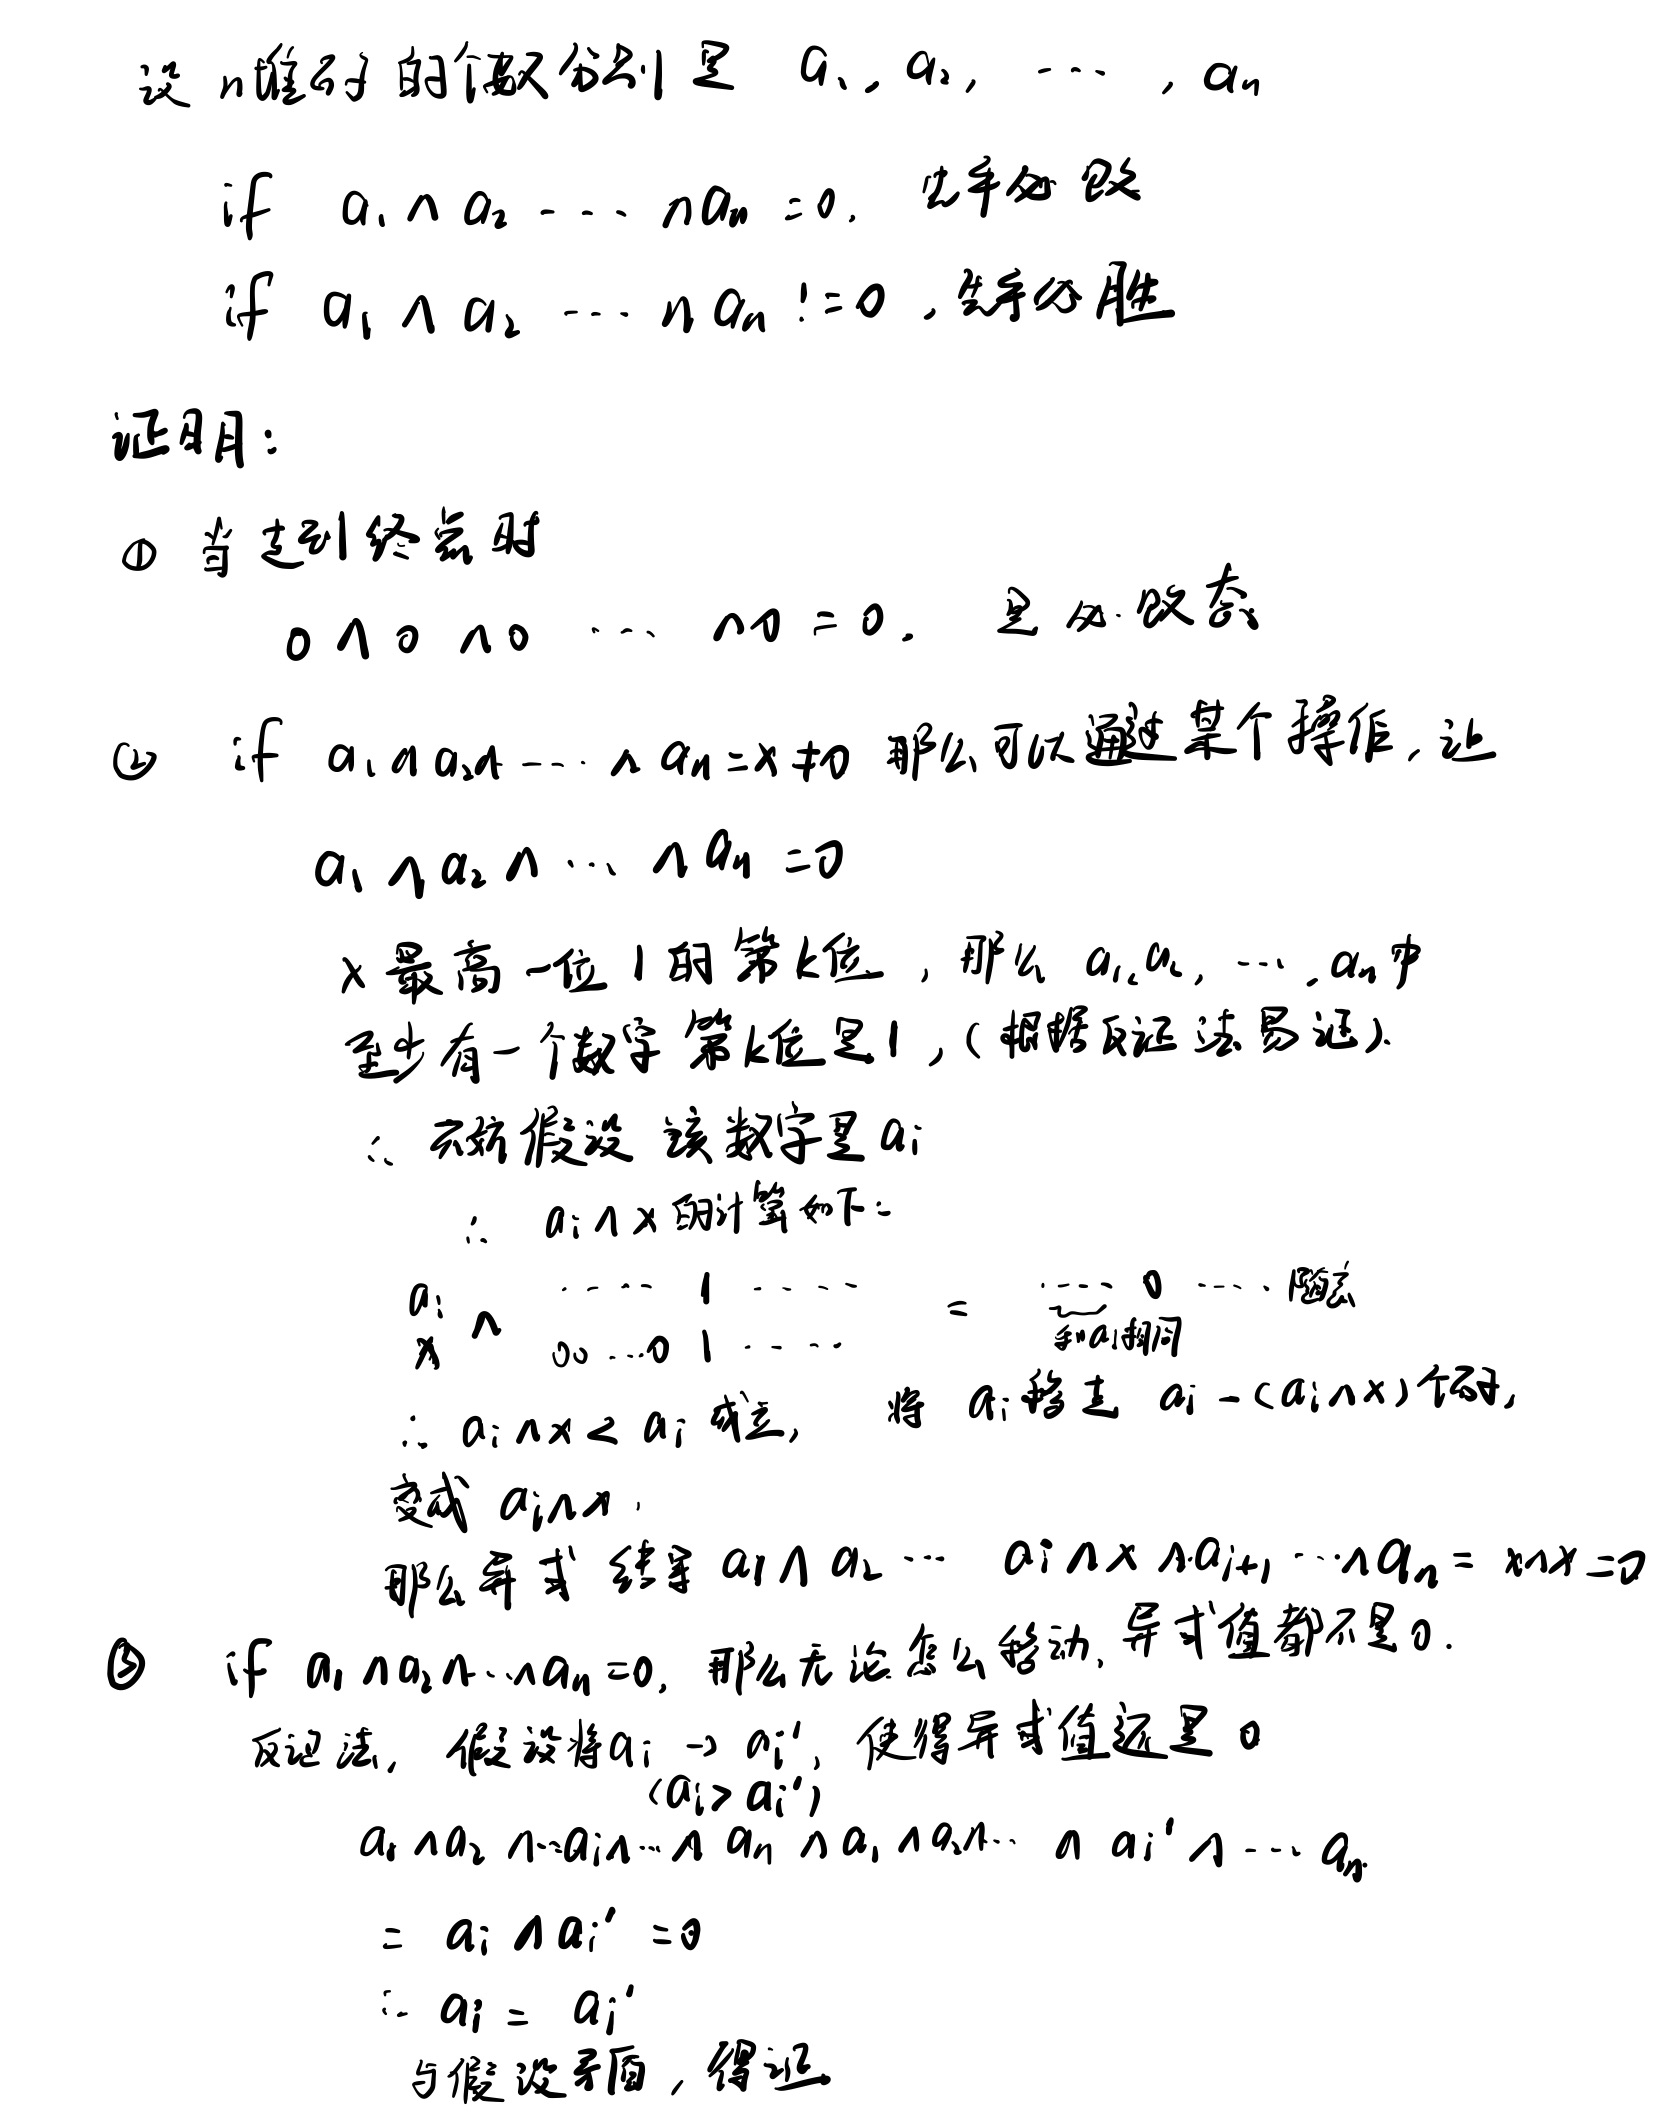 设 n堆石子的个数分别是 a₁, a₂, ···, aₙ
if a₁ ∧ a₂ ···· ∧ aₙ = 0, 先手必败
if a₁ ∧ a₂ ···· ∧ aₙ != 0, 先手必胜
证明:
① 当走到终点时
0 ∧ 0 ∧ 0 ···· ∧ 0 = 0. 是必败态
② if a₁ ∧ a₂ ∧ ···· ∧ aₙ = x ≠ 0 那么可以通过某个操作, 让
a₁ ∧ a₂ ∧ ···· ∧ aₙ = 0
x 最高一位 1 的第k位, 那么 a₁, a₂, ···, aₙ中
至少有一个数字 第k位是1, (根据反证法易证).
∴ 不妨假设 该数字是 aᵢ
∴ aᵢ ∧ x 的计算如下:
aᵢ ····· 1 ····· = ···· 0 ···· 随意
x ∧ 00 ···0 1 ····· 和aᵢ相同
∴ aᵢ ∧ x < aᵢ 成立, 将 aᵢ 移走 aᵢ - (aᵢ ∧ x) 个石子,
变成 aᵢ ∧ x,
那么异或结果 a₁ ∧ a₂ ··· aᵢ ∧ x ∧ aᵢ₊₁ ··· ∧ aₙ = x ∧ x = 0
③ if a₁ ∧ a₂ ∧ ··· ∧ aₙ = 0, 那么无论怎么移动, 异或值都不是 0.
反证法, 假设将 aᵢ → aᵢ', 使得异或值还是 0
(aᵢ > aᵢ')
a₁ ∧ a₂ ∧ ··· aᵢ ∧ ··· ∧ aₙ ∧ a₁ ∧ a₂ ∧ ··· ∧ aᵢ' ∧ ···· aₙ.
= aᵢ ∧ aᵢ' = 0
∴ aᵢ = aᵢ'
与假设矛盾, 得证